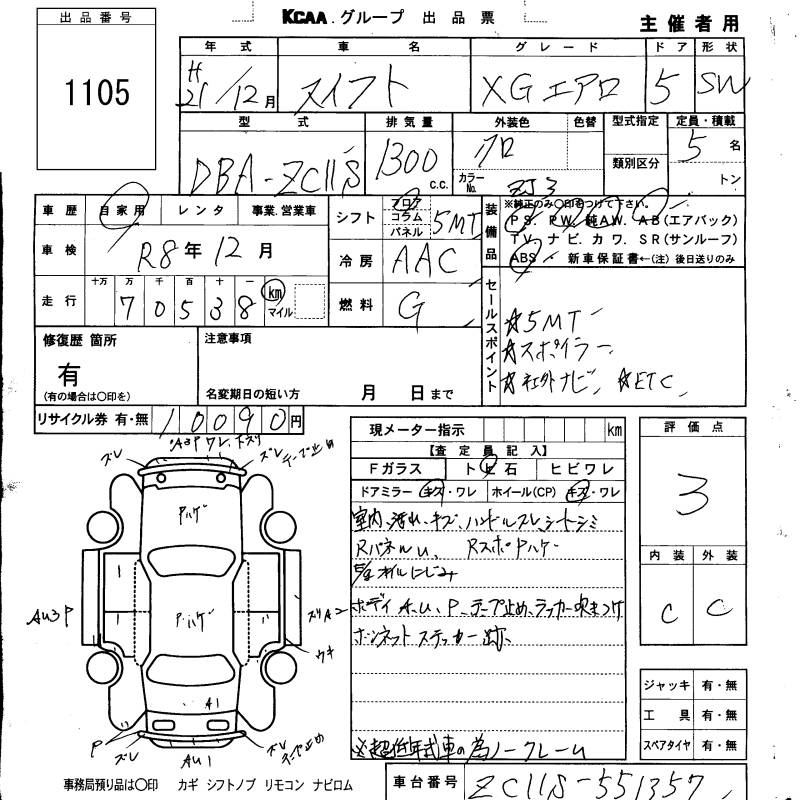 出品番号
1105
KCAA.グループ 出品票
主催者用
年式 車名 グレード ドア 形状
H21/12月 スイフト XGエアロ 5 SW
型式 排気量 外装色 色替 型式指定 定員・積載
DBA-ZC11S 1300 c.c. クロ カラーNo. ZJ3 類別区分 5名 トン
車歴 自家用 レンタ 事業.営業車
車検 R8年12月
走行 十万 万 千 百 十 一
70538 km マイル
シフト フロア コラム パネル 5MT
冷房 AAC
燃料 G
装備品
※純正のみ○印をつけて下さい。
PS. PW. 純AW. AB(エアバック)
TV. ナビ. カワ. SR(サンルーフ)
ABS 新車保証書←(注)後日送りのみ
セールスポイント
☆5MT
☆スポイラー
☆社外ナビ、☆ETC
修復歴 箇所
有
(有の場合は○印を)
注意事項
名変期日の短い方 月 日まで
リサイクル券 有・無 10090円
現メーター指示 km
【査定員記入】
Fガラス トビ石 ヒビワレ
ドアミラー キズ・ワレ ホイール(CP) キズ・ワレ
室内、汚れ、キズ、ハンドルスレ、シートシミ
RパネルU、 RスポPハゲ
オイルにじみ
ボディA.U、P、テープ止め、ラッカー吹きつけ
ボンネットステッカー跡
※超低年式車の為ノークレーム
評価点
3
内装 外装
C C
ジャッキ 有・無
工具 有・無
スペアタイヤ 有・無
A3P ワレ、下スリ
ズレ
ズレ テープ止め
Pハゲ
P.ハゲ
AU3P
スリA2
ウキ
A1
P
ズレ
AU1
ズレ
テープ止め
事務局預り品は○印 カギ シフトノブ リモコン ナビロム
車台番号 ZC11S-551357